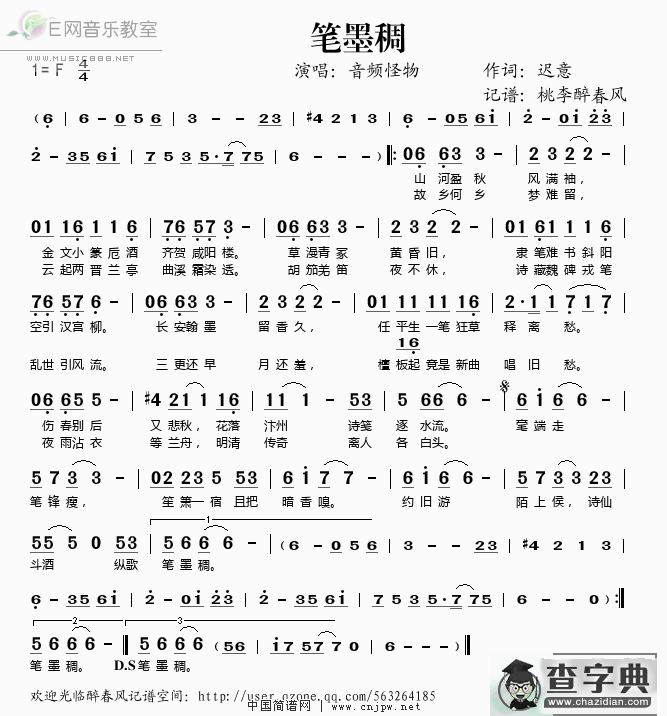 E网音乐教室
WWW.MUSIC888.NET
笔墨稠
1=F 4/4
演唱：音频怪物 作词：迟意
记谱：桃李醉春风
(6 | 6 - 0 5 6 | 3 - - 23 | #4 2 1 3 | 6 - 05 6i | 2 - 0i 23 |
2 - 35 6i | 7 5 3 5·7 75 | 6 - - ) ‖: 06 63 3 - | 2 3 2 2 - |
山 河盈 秋 风 满 袖，
故 乡何 乡 梦 难 留，
01 16 1 1 6 | 76 57 3 - | 06 63 3 - | 2 3 2 2 - | 01 61 1 16 |
金 文小 篆 卮 酒 齐贺 咸阳 楼。 草 漫青 冢 黄 昏 旧， 隶 笔难 书 斜阳
云 起两 晋 兰 亭 曲溪 霜染 透。 胡 笳羌 笛 夜 不 休， 诗 藏魏 碑 戎笔
76 57 6 - | 06 63 3 - | 2 3 2 2 - | 01 11 11 16 | 2· 1 1 7 1 7 |
空引 汉宫 柳。 长 安翰 墨 留 香 久， 任 平生 一笔 狂草 释 离 愁。
16
乱世 引风 流。 三 更还 早 月 还 羞， 檀 板起 竟是 新曲 唱 旧 愁。
06 65 5 - | #4 21 1 16 | 2 1 - 53 | 5 66 6 - | 6 i 6 6 - |
伤 春别 后 又 悲秋， 花落 汴州 诗笺 逐 水流。 毫 端 走
夜 雨沾 衣 等 兰舟， 明清 传奇 离人 各 白头。
5 7 3 3 - | 02 23 5 53 | 6 i 7 7 - | 6 i 6 6 - | 5 7 3 3 23 |
笔 锋 瘦， 笙 箫一 宿 且把 暗 香 嗅。 约 旧 游 陌 上 侯，诗仙
1
55 5 0 5 | 5 6 6 6 - | (6 - 0 5 6 | 3 - - 23 | #4 2 1 3 |
斗酒 纵歌 笔 墨 稠。
6 - 35 6i | 2 - 0i 23 | 2 - 35 6i | 7 5 3 5·7 75 | 6 - - 0) :‖
2 3
5 6 6 6 - ‖ 5 6 6 6 (56 | i7 57 7 0 | 6 - - - ) ‖
笔 墨 稠。 D.S 笔 墨 稠。
欢迎光临醉春风记谱空间：http://user.qzone.qq.com/563264185
中国简谱网 www.cnjpw.net
查字典
www.chazidian.com